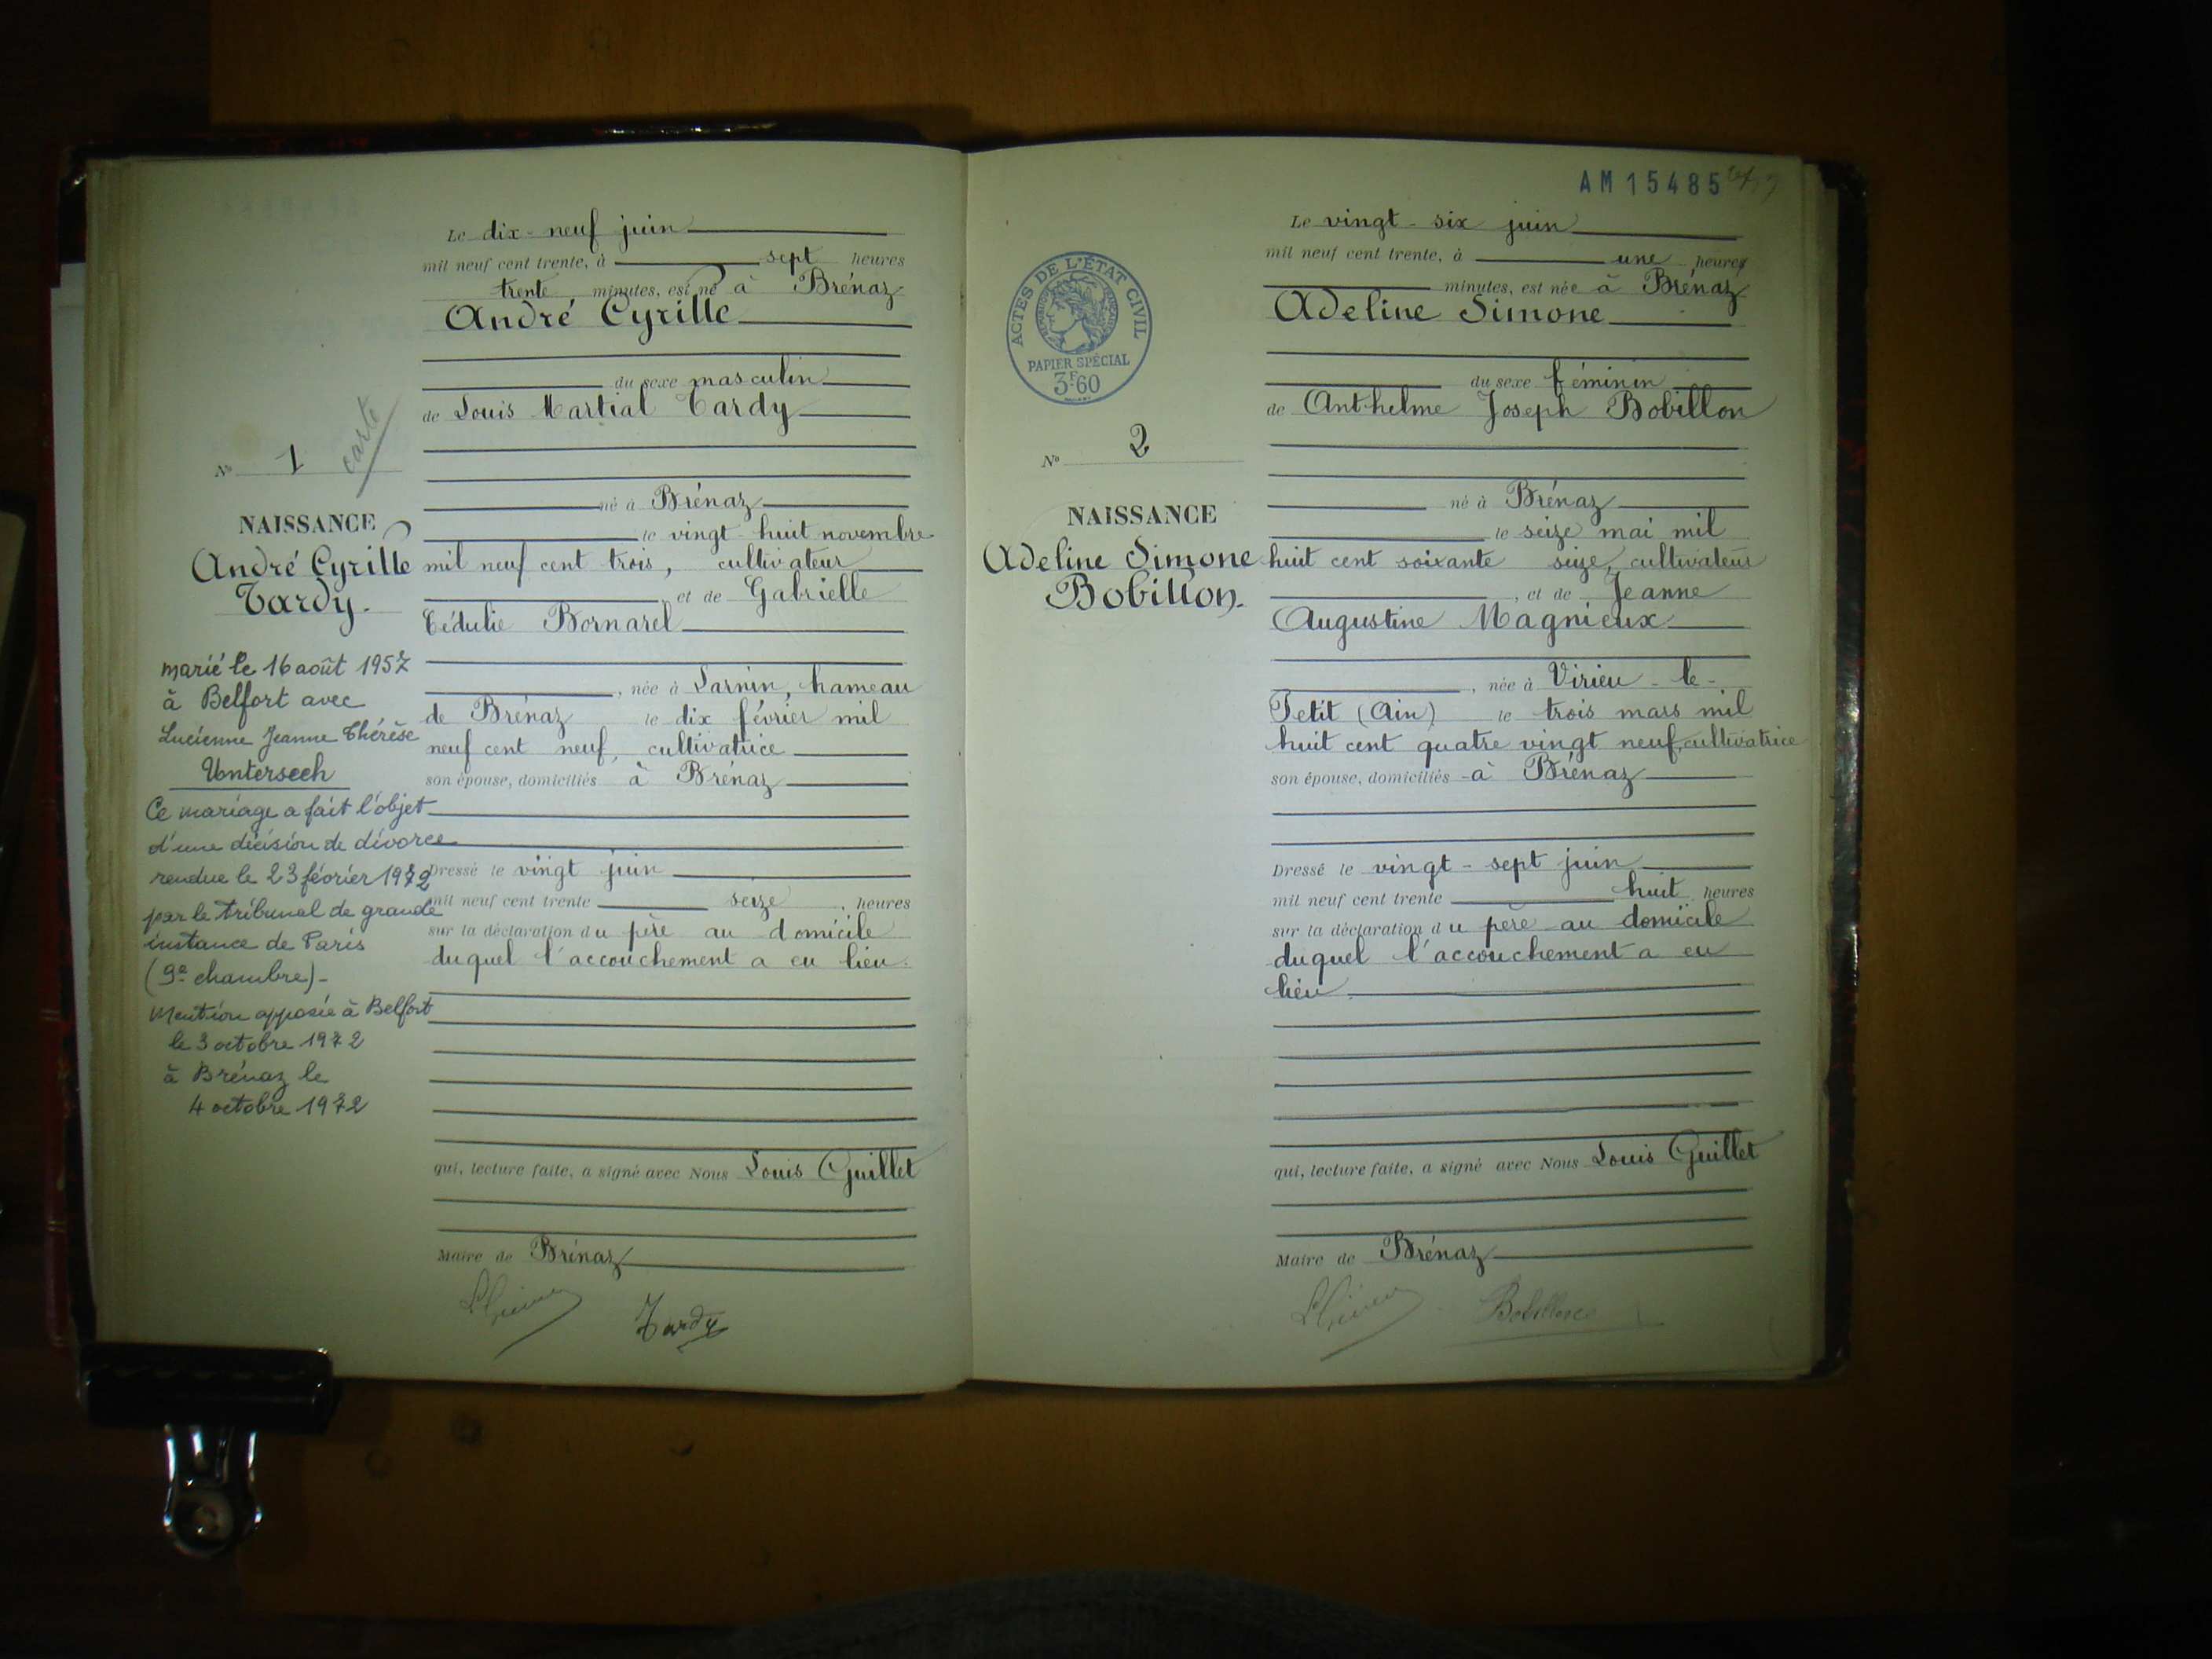 Le dix-neuf juin
mil neuf cent trente, à sept heures
trente minutes, est né à Brénaz
André Cyrille
du sexe masculin
de Louis Martial Tardy
carte
N° 1
né à Brénaz
NAISSANCE
le vingt-huit novembre
André Cyrille
Tardy.
mil neuf cent trois, cultivateur
, et de Gabrielle
Cédulie Bornarel
, née à Larnin, hameau
de Brénaz le dix février mil
neuf cent neuf, cultivatrice
son épouse, domiciliés à Brénaz
marié le 16 août 1957
à Belfort avec
Lucienne Jeanne Thérèse
Untersech
Ce mariage a fait l'objet
d'une décision de divorce
rendue le 23 février 1972
par le tribunal de grande
instance de Paris
(9e chambre)-
Mention apposée à Belfort
le 3 octobre 1972
à Brénaz le
4 octobre 1972
Dressé le vingt juin
mil neuf cent trente seize, heures
sur la déclaration du père au domicile
duquel l'accouchement a eu lieu.
qui, lecture faite, a signé avec Nous Louis Guillet
Maire de Brénaz
Tardy
AM 15485
Le vingt-six juin
mil neuf cent trente, à une heure
minutes, est née à Brénaz
Adeline Simone
du sexe féminin
de Anthelme Joseph Bobillon
ACTES DE L'ÉTAT CIVIL
RÉPUBLIQUE FRANÇAISE
PAPIER SPÉCIAL
3F60
N° 2
né à Brénaz
NAISSANCE
Adeline Simone
Bobillon.
le seize mai mil
huit cent soixante seize, cultivateur
, et de Jeanne
Augustine Magnieux
, née à Virieu-le-
Petit (Ain) le trois mars mil
huit cent quatre vingt neuf, cultivatrice
son épouse, domiciliés à Brénaz
Dressé le vingt-sept juin
mil neuf cent trente huit heures
sur la déclaration du père au domicile
duquel l'accouchement a eu
lieu.
qui, lecture faite, a signé avec Nous Louis Guillet
Maire de Brénaz
Bobillon